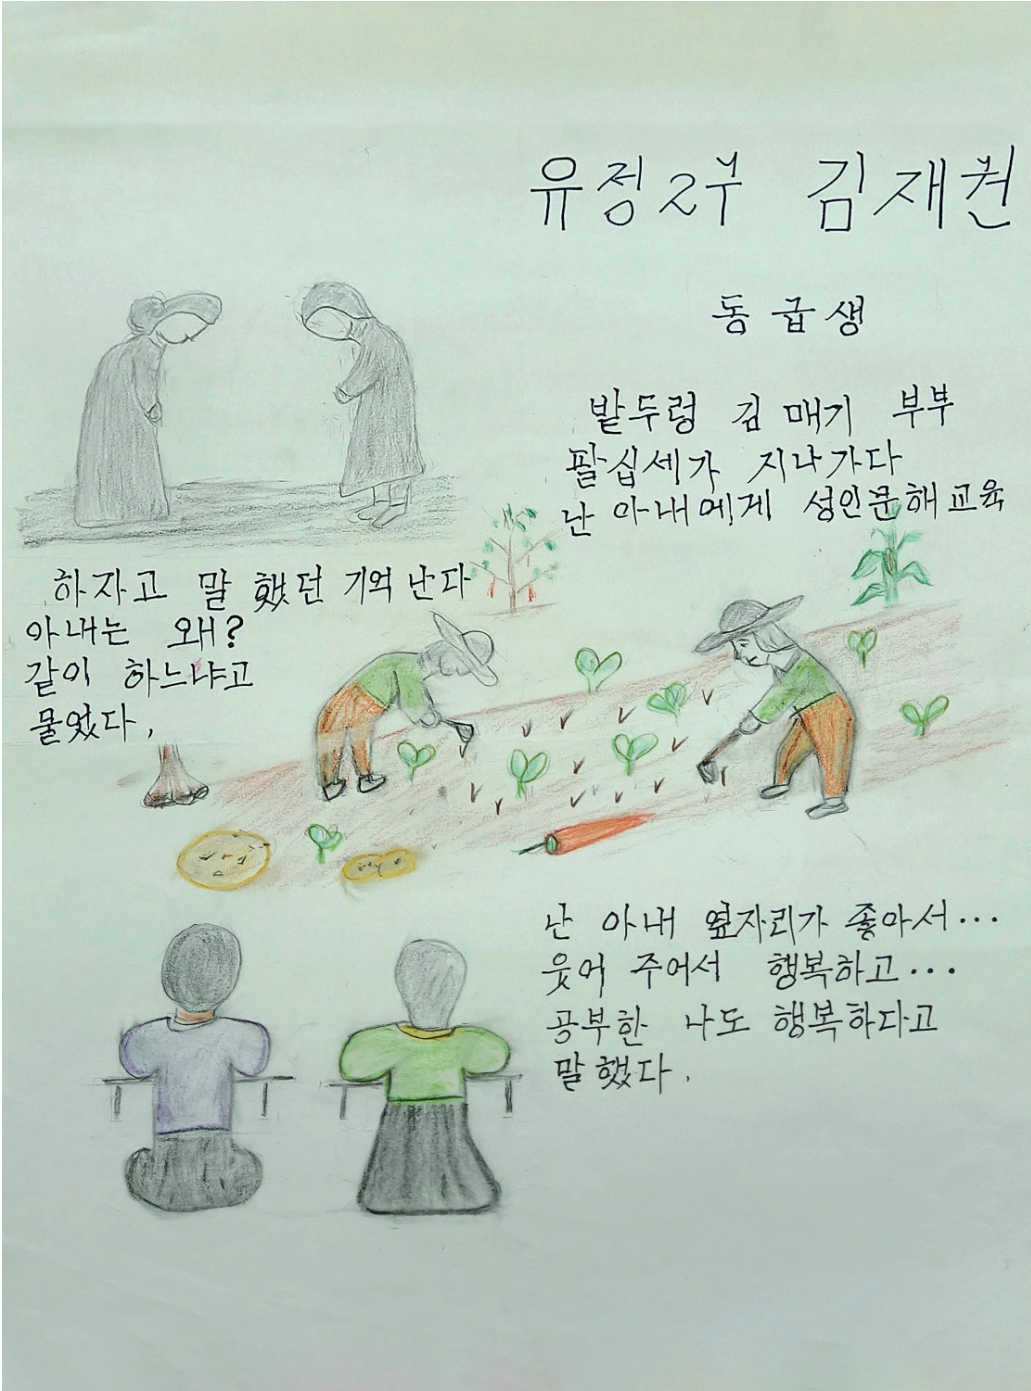 유정2부 김재권
동급생
밭두렁 김 매기 부부
팔십세가 지나가다
난 아내에게 성인문해교육
하자고 말 했던 기억 난다
아내는 왜?
같이 하느냐고
물었다.
난 아내 옆자리가 좋아서...
웃어 주어서 행복하고...
공부한 나도 행복하다고
말했다.